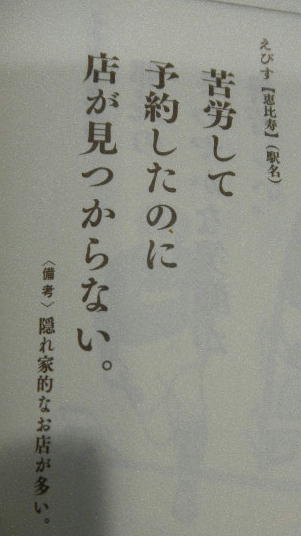 えびす【恵比寿】（駅名）
苦労して
予約したのに
店が見つからない。
〈備考〉隠れ家的なお店が多い。